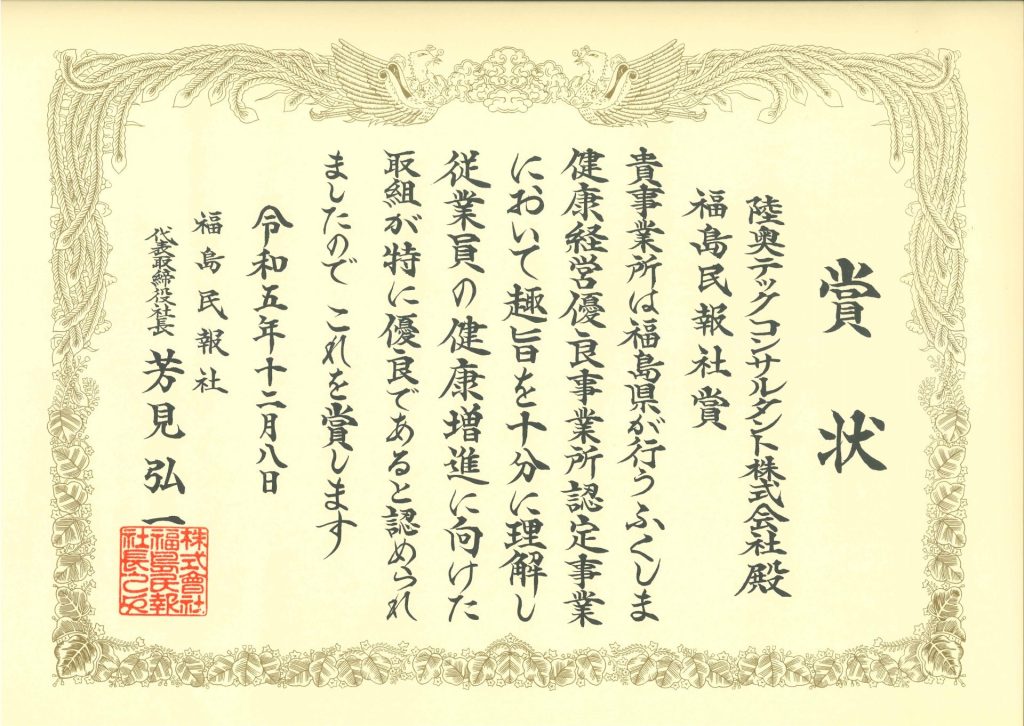 賞状
陸奥テックコンサルタント株式会社殿
福島民報社賞
貴事業所は福島県が行うふくしま
健康経営優良事業所認定事業
において趣旨を十分に理解し
従業員の健康増進に向けた
取組が特に優良であると認められ
ましたので これを賞します
令和五年十二月八日
福島民報社
代表取締役社長 芳見弘一
株式會社
福島民報
社長之印